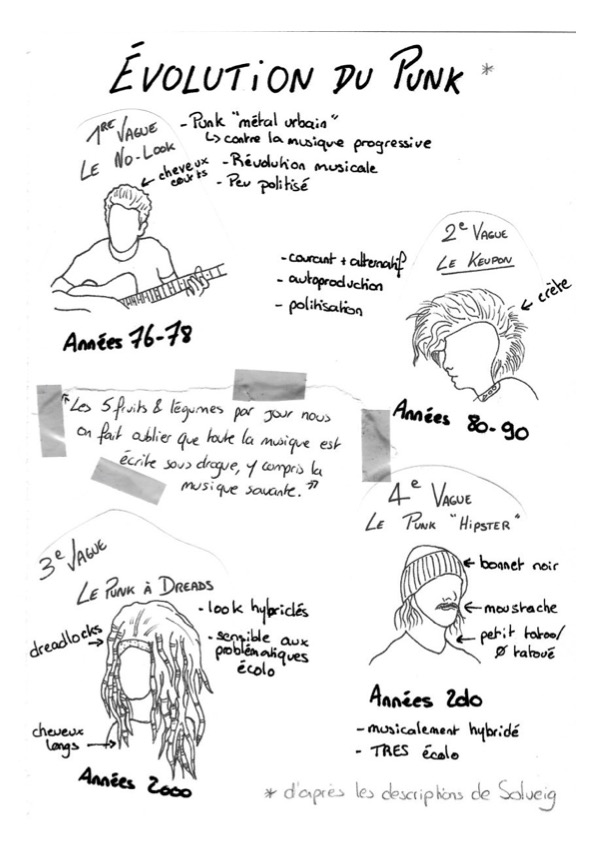 ÉVOLUTION DU PUNK *
1RE VAGUE
LE NO-LOOK
- Punk "métal urbain"
↳ contre la musique progressive
- Révolution musicale
- Peu politisé
cheveux
courts
Années 76-78
2e VAGUE
LE KEUPON
- courant + alternatif
- autoproduction
- politisation
crète
Années 80-90
"Les 5 fruits & légumes par jour nous
on fait oublier que toute la musique est
écrite sous drogue, y compris la
musique savante."
3e VAGUE
LE PUNK À DREADS
dreadlocks
- look hybridés
- sensible aux
problématiques
écolo
cheveux
longs
Années 2000
4e VAGUE
LE PUNK "HIPSTER"
bonnet noir
moustache
petit tatoo/
Ø tatoué
Années 2010
- musicalement hybridé
- TRES écolo
* d'après les descriptions de Solveig